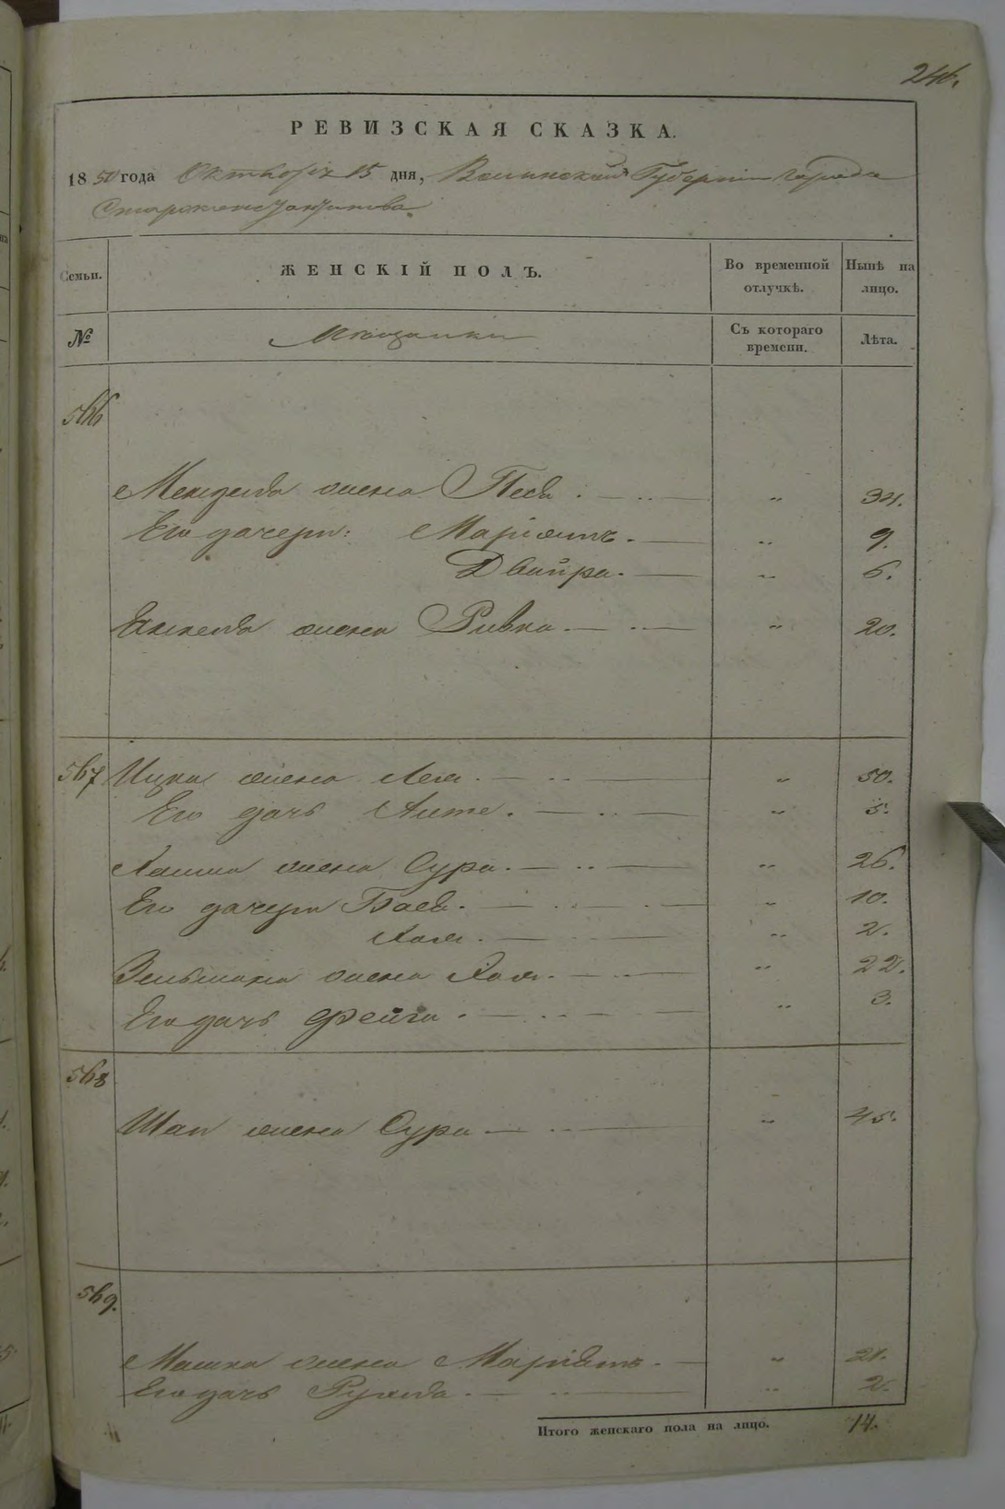 246.
РЕВИЗСКАЯ СКАЗКА.
1850 года Октября 15 дня, Волынской Губернии города
Староконстантинова
Семьи. ЖЕНСКІЙ ПОЛЪ. Во временной отлучкѣ. Нынѣ на лицо.
№ Мѣщанки Съ котораго времени. Лѣта.
566
Менделя жена Песя . — .. — „ 34.
Его дочери: Маріямъ . — „ 9.
Двойра . — „ 6.
Янкеля жена Ривка . — .. — „ 20.
567 Ицка жена Лея . — .. — „ 50.
Его дочь . — .. — „ 5.
жена Сура . — .. — „ 26.
Его дочери Бася . — .. — „ 10.
Хая . — .. — „ 2.
Зельмана жена Хая . — .. — „ 22.
Его дочь Фейга . — .. — „ 3.
568
жена Сура — .. — „ 45.
569.
Мошка жена Маріямъ . — „ 21.
Его дочь . — .. — „ 2.
Итого женскаго пола на лицо. 14.